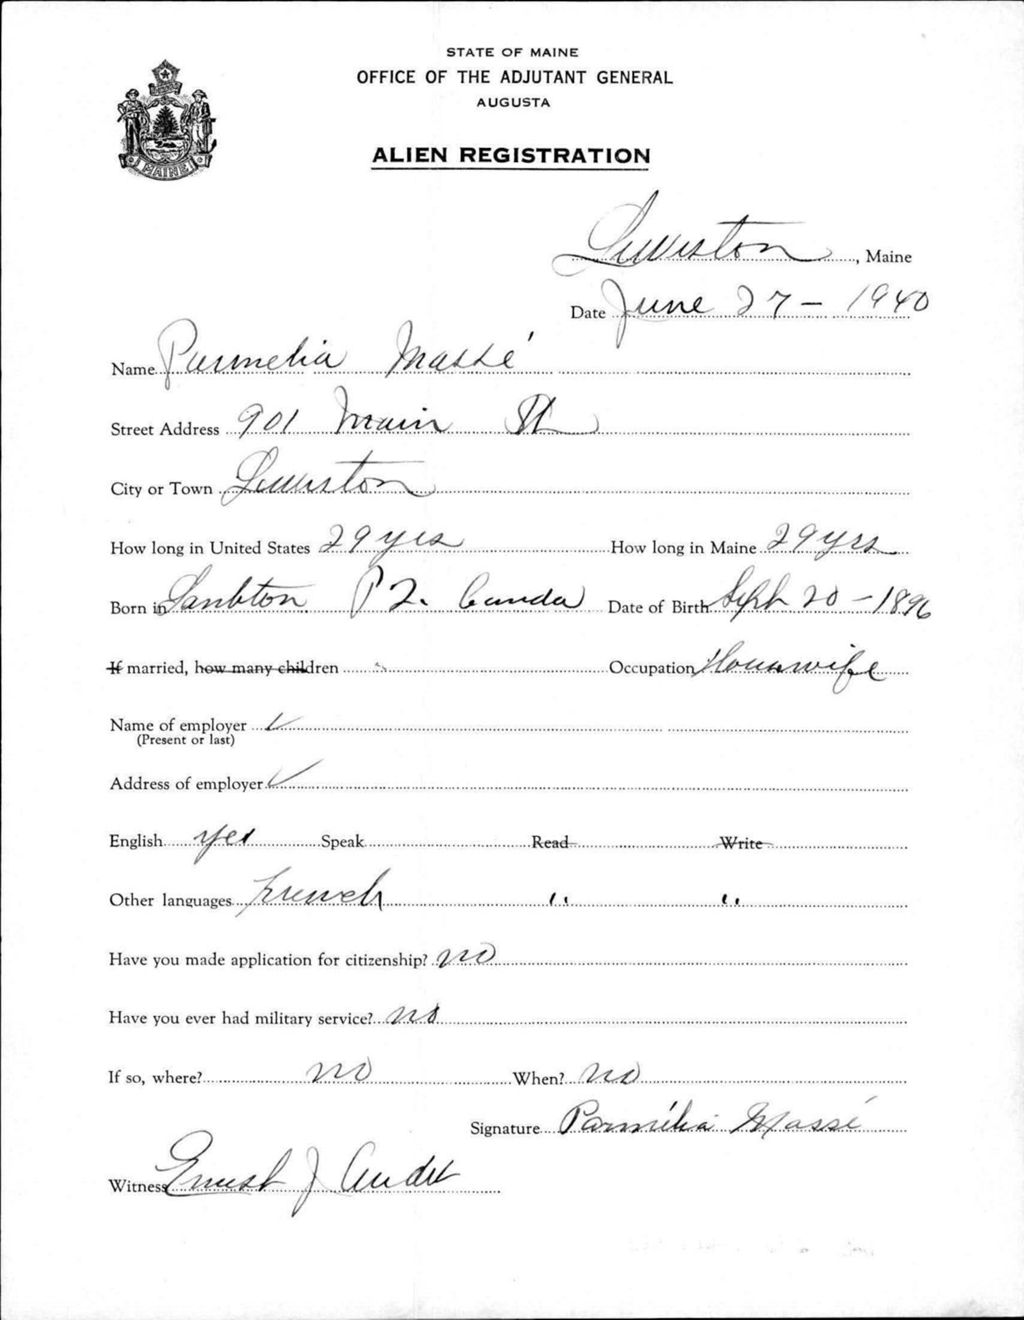 STATE OF MAINE
OFFICE OF THE ADJUTANT GENERAL
AUGUSTA
MAINE
ALIEN REGISTRATION
Lewiston, Maine
Date June 27 - 1940
Name Parmelia Massé
Street Address 901 Main St
City or Town Lewiston
How long in United States 29 yrs How long in Maine 29 yrs
Born in Lambton P Q. Canda Date of Birth Sept 20 - 1896
If married, how many children Occupation Housewife
Name of employer ✓
(Present or last)
Address of employer ✓
English yes Speak Read Write
Other languages French " "
Have you made application for citizenship? no
Have you ever had military service? no
If so, where? no When? no
Signature Parmélia Massé
Witness Ernest J Audet